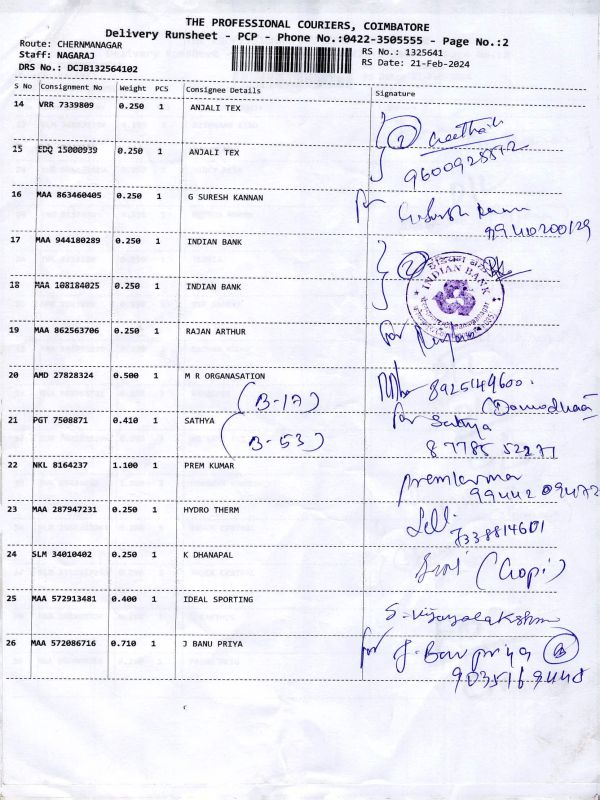 THE PROFESSIONAL COURIERS, COIMBATORE
Delivery Runsheet - PCP - Phone No.:0422-3505555 - Page No.:2
Route: CHERNMANAGAR
Staff: NAGARAJ
DRS No.: DCJB132564102
RS No.: 1325641
RS Date: 21-Feb-2024
S No Consignment No Weight PCS Consignee Details Signature
14 VRR 7339809 0.250 1 ANJALI TEX
2
15 EDQ 15000939 0.250 1 ANJALI TEX
16 MAA 863460405 0.250 1 G SURESH KANNAN
for
17 MAA 944180289 0.250 1 INDIAN BANK
2
INDIAN BANK
18 MAA 108184025 0.250 1 INDIAN BANK
19 MAA 862563706 0.250 1 RAJAN ARTHUR
for
20 AMD 27828324 0.500 1 M R ORGANASATION
(B-17)
8925149600.
21 PGT 7508871 0.410 1 SATHYA
(B-53)
for Sathya
87785 52271
22 NKL 8164237 1.100 1 PREM KUMAR
Premkumar
99442 09472
23 MAA 287947231 0.250 1 HYDRO THERM
7338814601
24 SLM 34010402 0.250 1 K DHANAPAL
(Gopi)
25 MAA 572913481 0.400 1 IDEAL SPORTING
S-Vijayalakshmi
26 MAA 572086716 0.710 1 J BANU PRIYA
for J. Banu priya